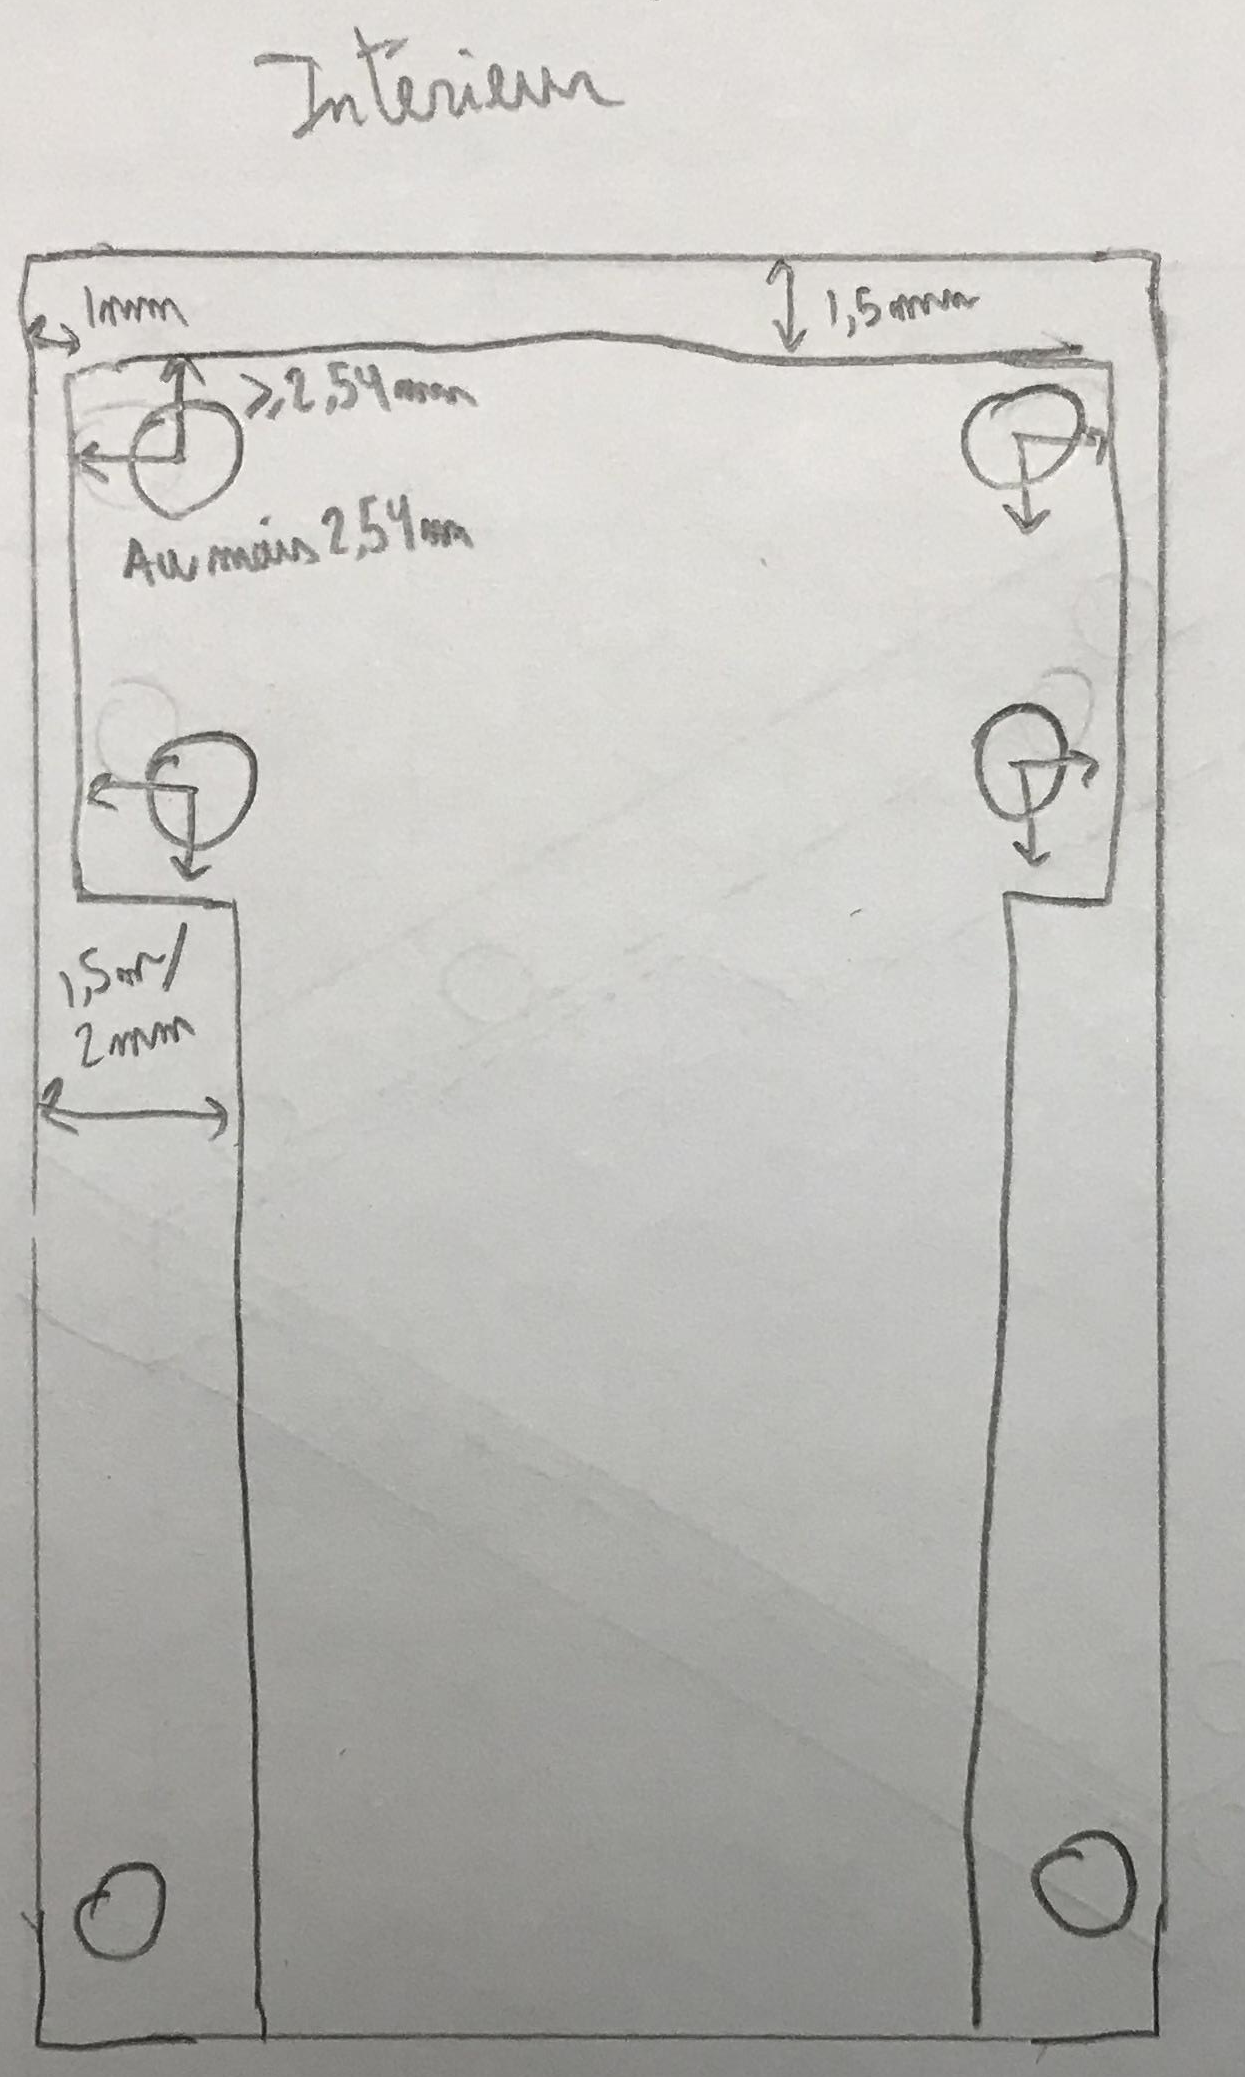 Intérieur
1mm
1,5mm
≥ 2,54mm
Au mois 2,54mm
1,5mm/
2mm